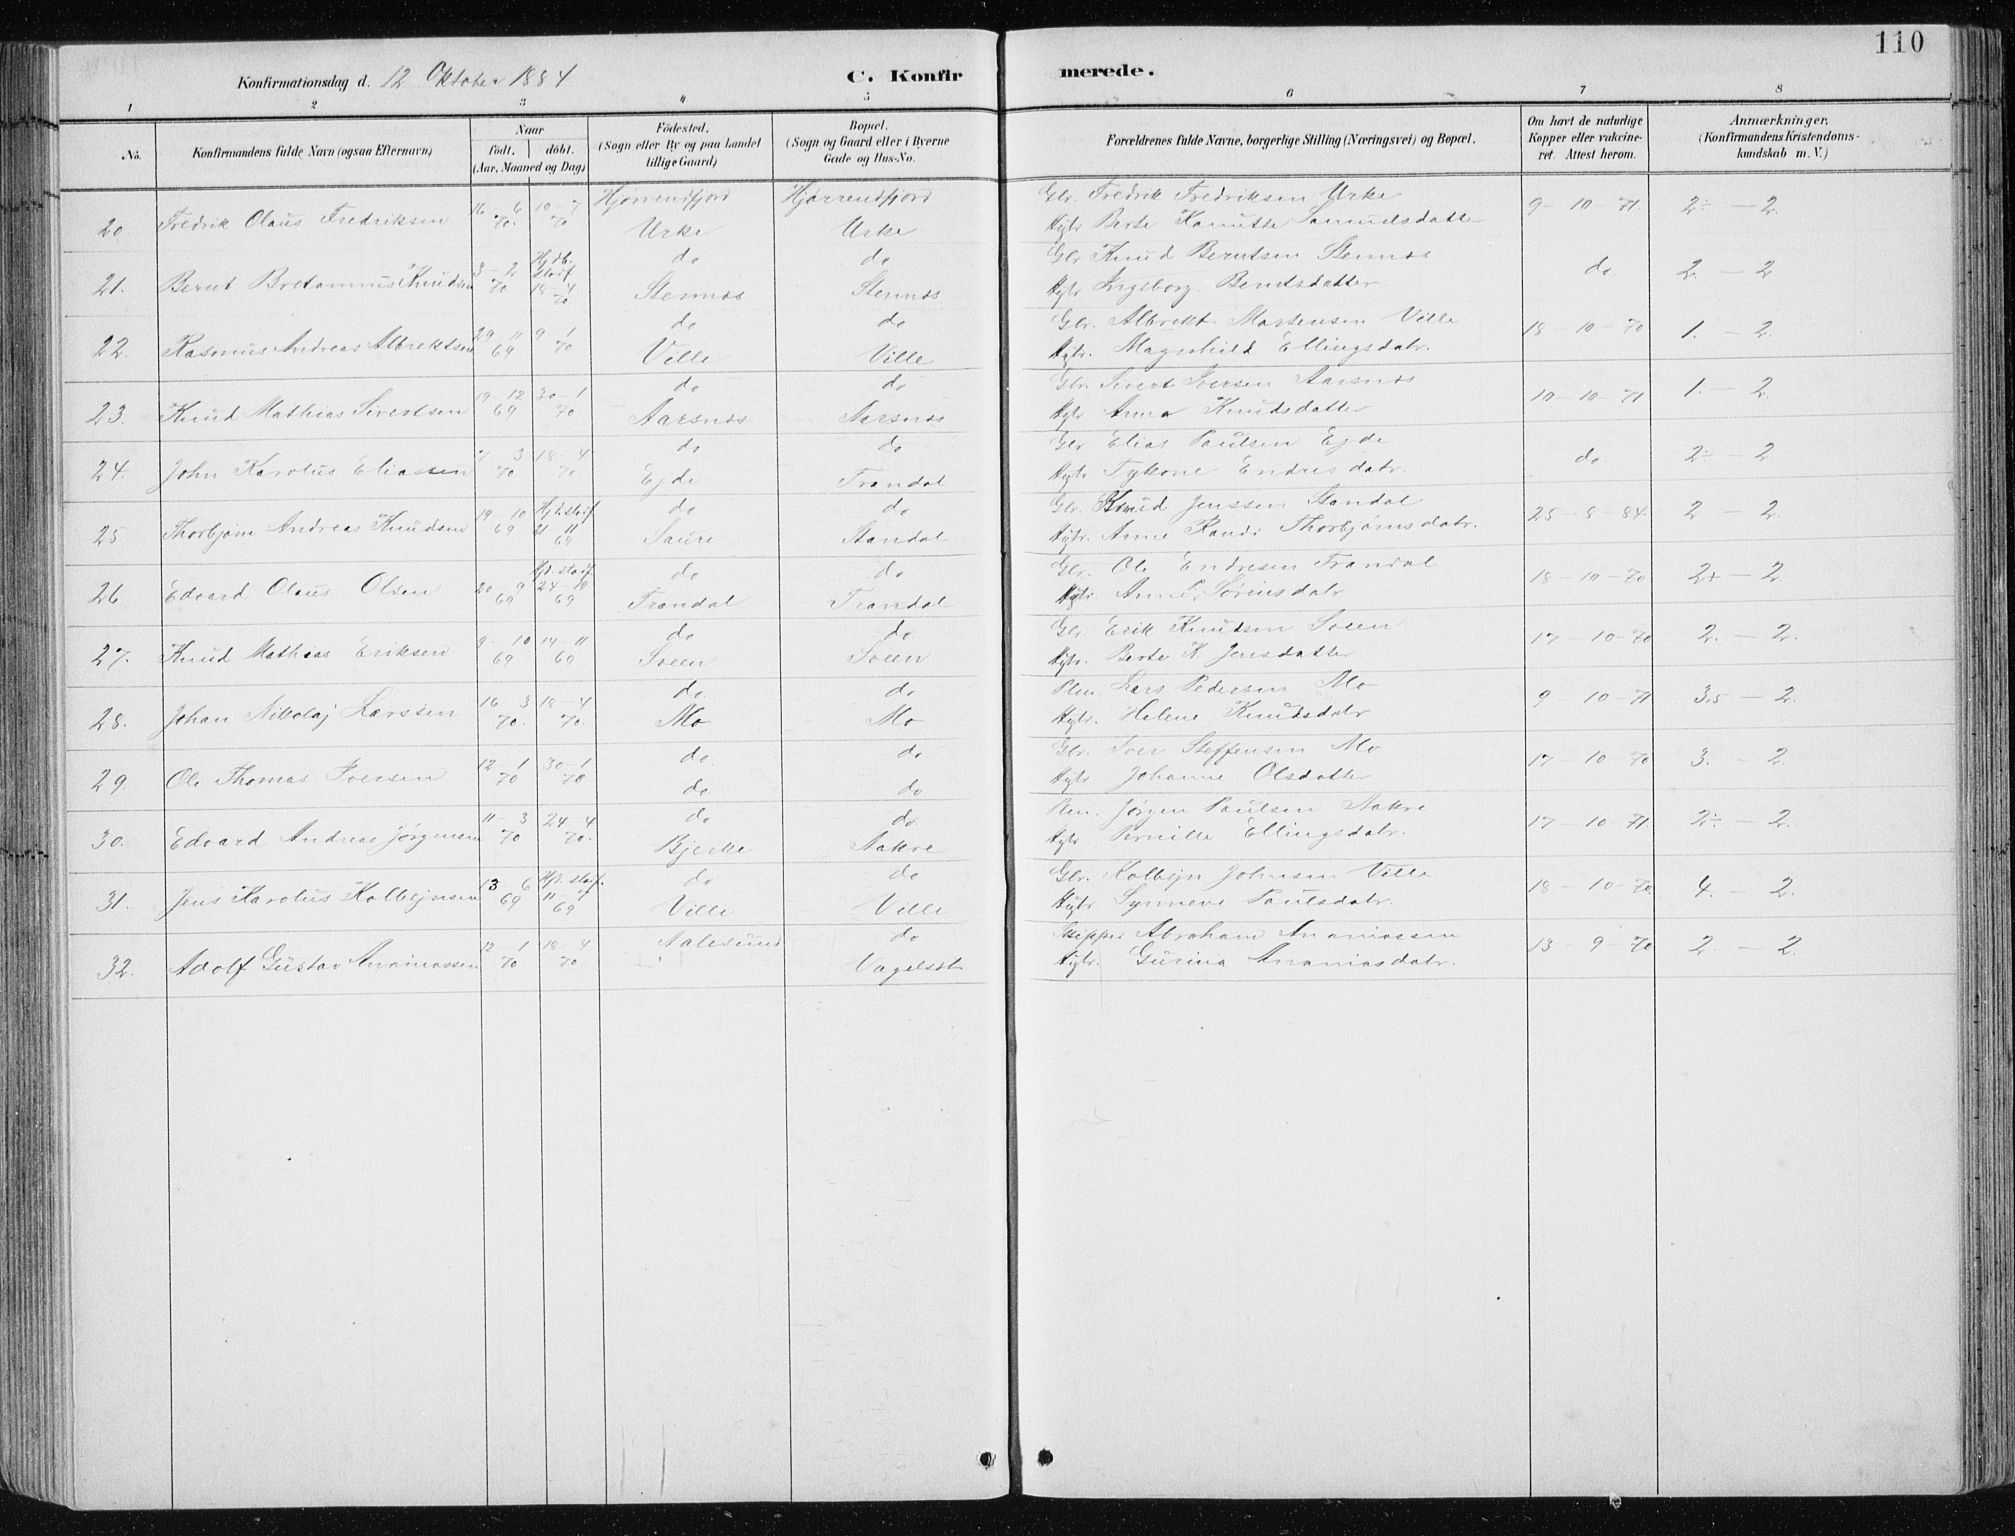 110
Konfirmationsdag d. 12 Oktober 1884 C. Konfirmerede.
1 2 3 4 5 6 7 8
No. Konfirmandens fulde Navn (ogsaa Efternavn) Naar født. døbt. (Aar, Maaned og Dag) Fødested. (Sogn eller By og paa Landet tillige Gaard) Bopæl. (Sogn og Gaard eller i Byerne Gade og Hus-No. Forældrenes fulde Navne, borgerlige Stilling (Næringsvei) og Bopæl. Om havt de naturlige Kopper eller vakcineret. Attest herom. Anmærkninger. (Konfirmandens Kristendomskundskab m. V.)
20. Fredrik Olaus Fredriksen 16-6 70. 10-7 70 Hjørrendfjord Urke Hjørrendfjord Urke Gbr. Fredrik Fredriksen Urke
Hstr Berte Knutte Samuelsdatter 9-10-71. 2÷ - 2.
21. Bernt Bretamus Knudsen 3-2 70 Hjdb. Stadf. 18-4 70 do Stennes do Stennes Gbr Knud Berntsen Stennes
Hstr Ingeborg Berntsdatter do. 2. - 2
22. Rasmus Andreas Albrektsen 29 11 69 9 1 70 do Ville do Ville Gbr. Albrekt Mortensen Ville
Hstr. Magnhild Ellingsdatr. 18-10-70 1. - 2.
23. Knud Mathias Sivertsen 19 12 69 30-1 70 do Aarsnes do Aarsnes Gbr. Sivert Iversen Aarsnes
Hstr Anna Knudsdatter 10-10-71 1. - 2.
24. John Karolus Eliassen 7 3 70 18-4 70 do Ejde do Trandal Gbr Elias Paulsen Ejde
Hstr Endresdatr. do 2÷ - 2
25 Thorbjørn Andreas Knudsen 19 10 69 Hjd. stadf. 21 11 69 do Saure do Standal Gbr. Knud Jenssen Standal
Hstr. Anne Randi Thorbjørnsdatr. 25-8-84. 2 - 2.
26 Edvard Olaus Olsen 20-9 69 Hjd. stadf. 24-10 69 do Trandal do Trandal Gbr. Ole Endresen Trandal
Hstr. Anne Sørensdatr 18-10-70 2+ - 2.
27. Knud Mathias Eriksen 9 10 69 14-11 69 do Soeen do Soeen Gbr. Erik Knudsen Soeen
Hstr. Berte K. Jensdatter 17-10-70 2. - 2.
28. Johan Nikolaj Larssen 16 3 70. 18-4 70. do Mo do Mo Plm. Lars Pedersen Mo
Hstr. Helene Knudsdatr 9-10-71 3.5 - 2.
29 Ole Thomas Iversen 12-1 70 30-1 70 do do do do Gbr. Iver Steffensen Mo
Hstr Johanne Olsdatter 17-10-70 3. - 2.
30. Edvard Andreas Jørgensen 11-3 70 24-4 70. do Bjerke do. Aakre Plm. Jørgen Paulsen Aakre
Hstr Pernille Ellingsdatr. 17-10-71. 2÷ - 2.
31. Jens Karolus Kolbejnsen 13 6 69 Hjd. stadf. 11 7 69 do Ville do Ville Gbr. Kolbejn Johnsen Ville
Hstr Synneve Paulsdatr. 18-10-70. 4. - 2.
32. Adolf Gustav Ananiassen 12-1 70 18-4 70 Aalesund do Vagelset Skipper Abraham Ananiassen
Hstr. Gurina Ananiasdatr. 13-9-70 2. - 2.